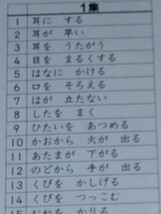 1集
1 耳に する
2 耳が 早い
3 耳を うたがう
4 目を まるくする
5 はなに かける
6 口を そろえる
7 はが 立たない
8 したを まく
9 ひたいを あつめる
10 かおから 火が 出る
11 あたまが 下がる
12 のどから 手が 出る
13 くびを かしげる
14 くびを つっこむ